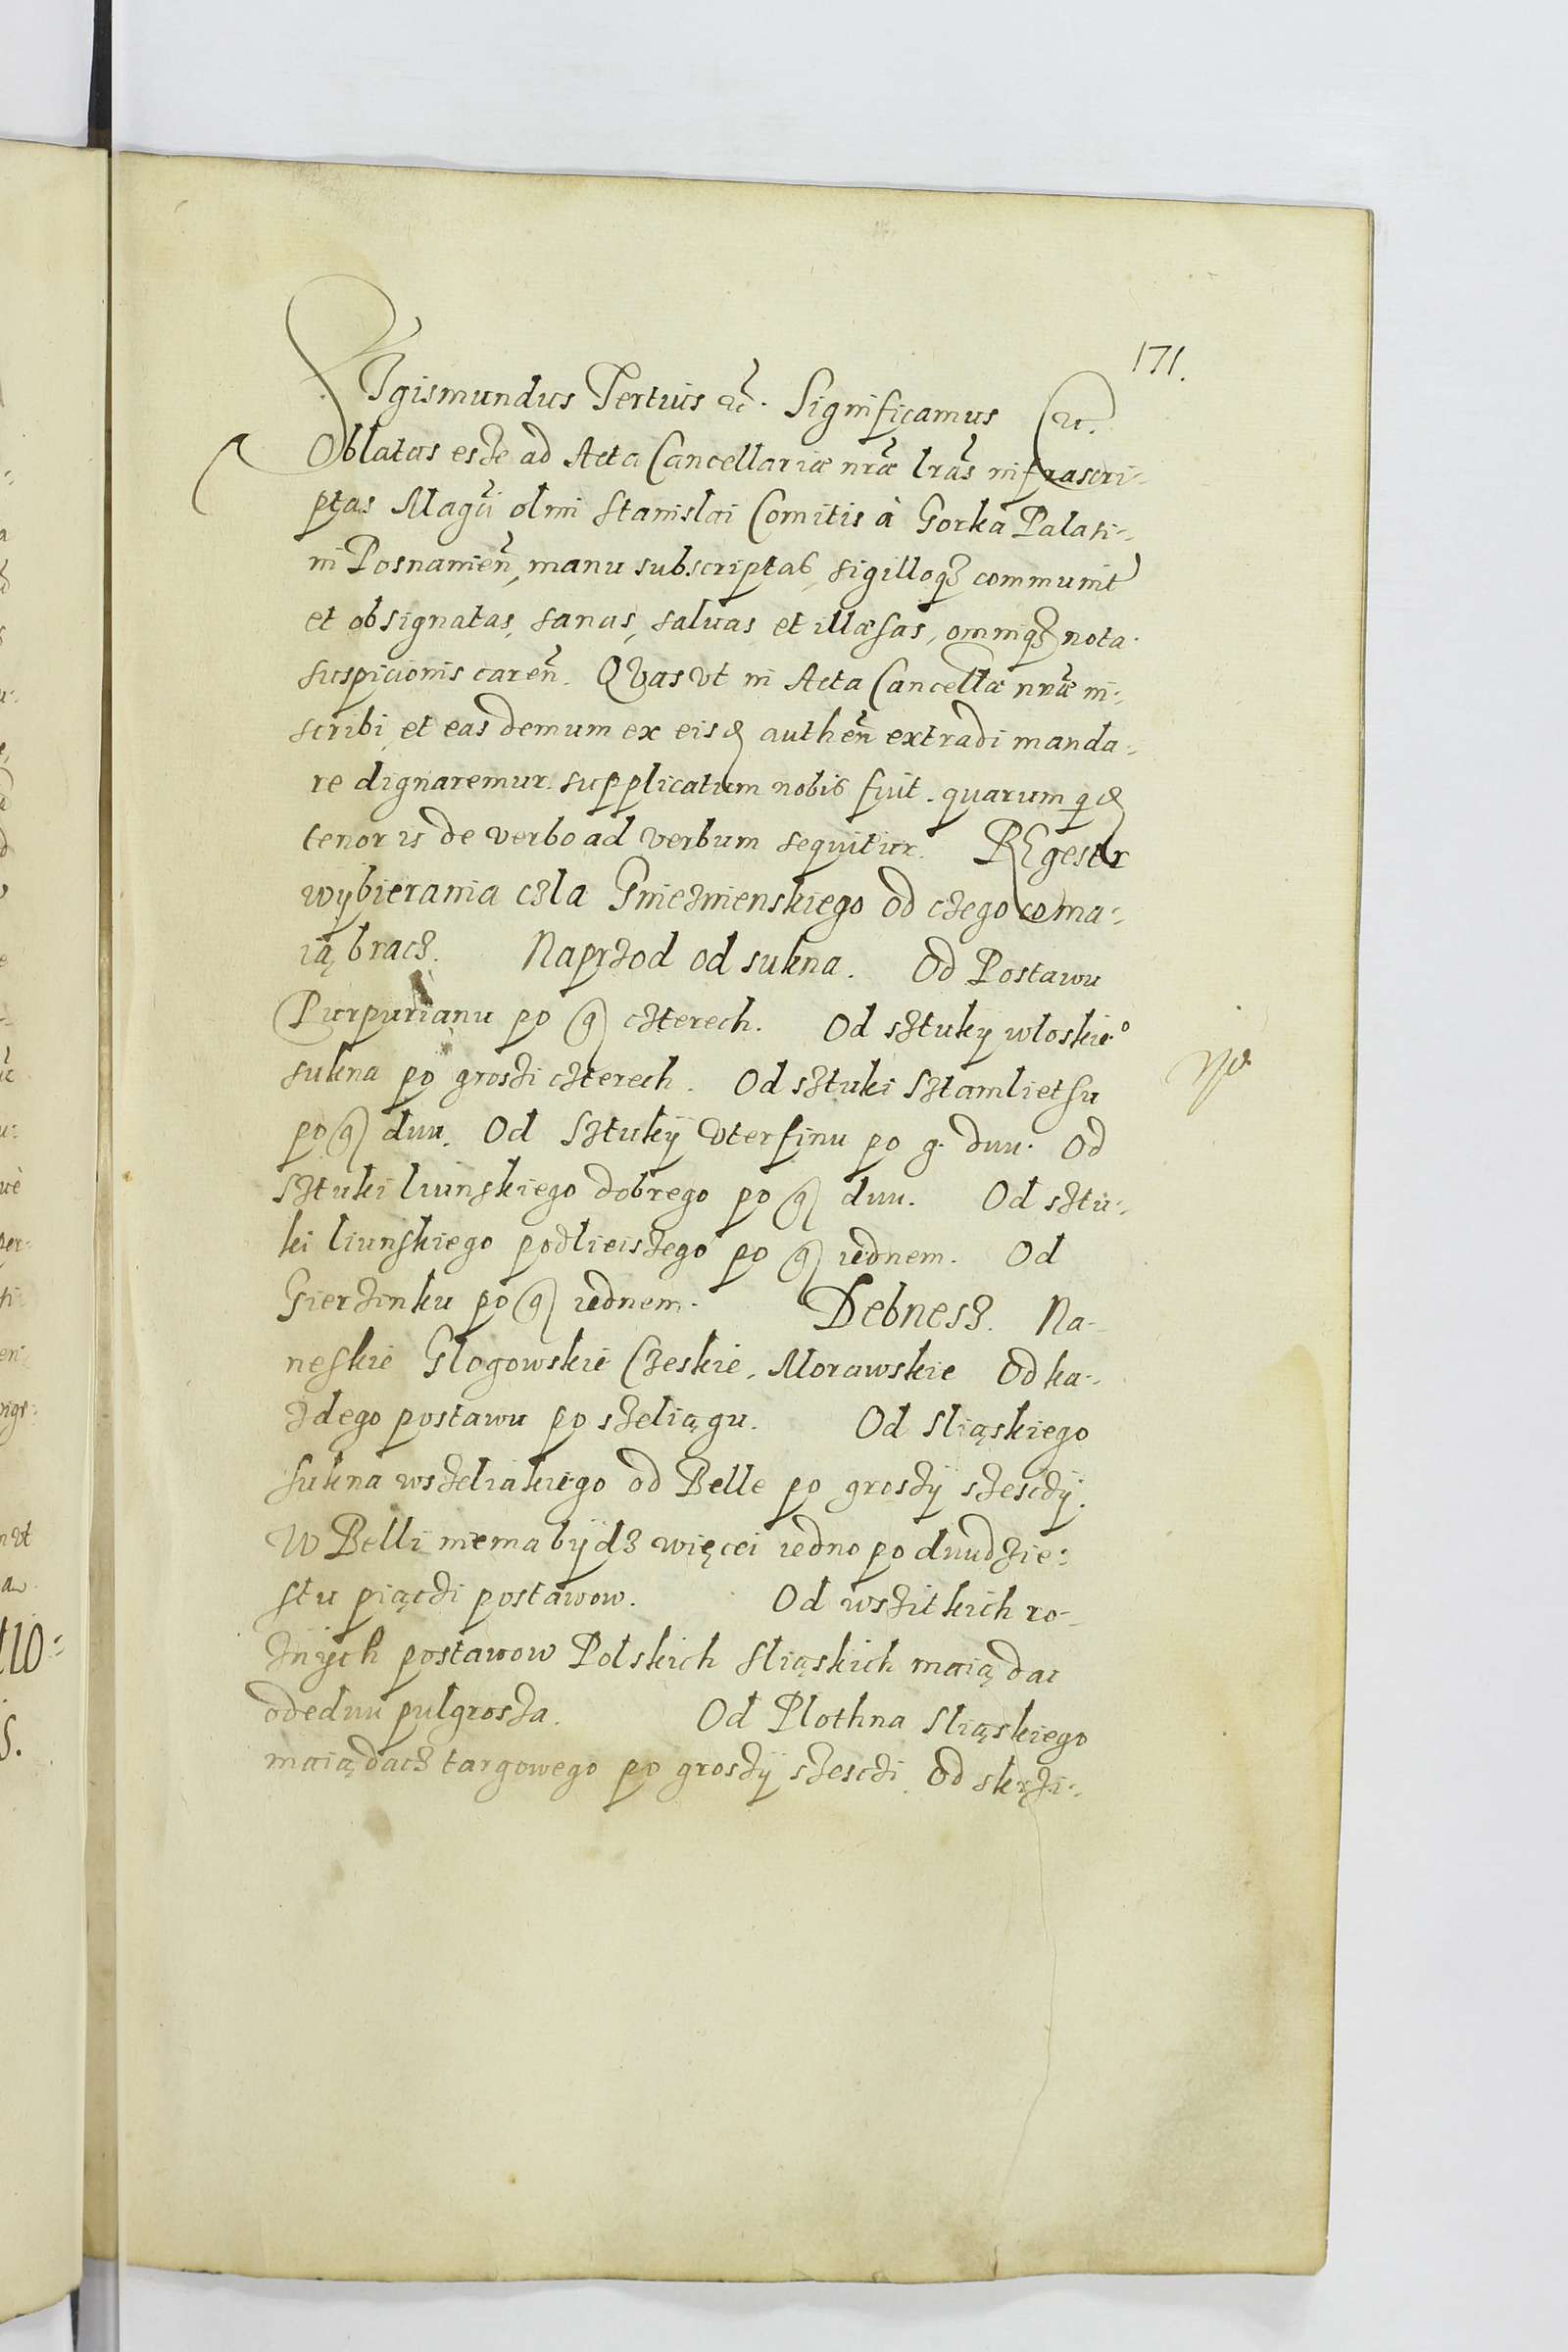 171.
SIgismundus Tertius etc. Significamus etc.
Oblatas esse ad Acta Cancellariæ nrae lras infrascri-
ptas Magci olim Stanislai Comitis à Gorka Palati-
ni Posnanien, manu subscriptas, sigilloq3 communit
et obsignatas, sanas, saluas et illæsas, omniq3 nota
suspicionis caren. Quas vt in Acta Cancellæ nrae in-
scribi, et eas demum ex eisd authen extradi manda-
re dignaremur. supplicatum nobis fuit. quarum qd
tenor is de verbo ad verbum sequitur. REgestr
wybierania czla Gnieznienskiego od czego co ma-
ią bracz. Naprzod od sukna. Od Postawu
Purpurianu po g czterech. Od sztuky wloskieo
sukna po groszi czterech. Od sztuki Sztamlietsu
po g duu. Od Sztukÿ vterfinu po g. duu. Od
sztuki liunskiego dobrego po g duu. Od sztu-
ki liunskiego podlieiszego po g iednem. Od
Gierzinku po g iednem. Debnesz. Na-
neskie Glogowskie Czeskie, Morawskie Od ka-
zdego postawu po szeliągu. Od sliąskiego
sukna wszeliakiego od Belle po groszÿ szesczÿ.
W Belli niema bÿdz więcei iedno po duudzie-
stu piączi postawow. Od wszitkich ro-
znÿch postawow Polskich sliąskich maią dac
odeduu pulgrosza. Od Plothna sliąskiego
maią dacz targowego po groszÿ szesczi. Od skrzi-